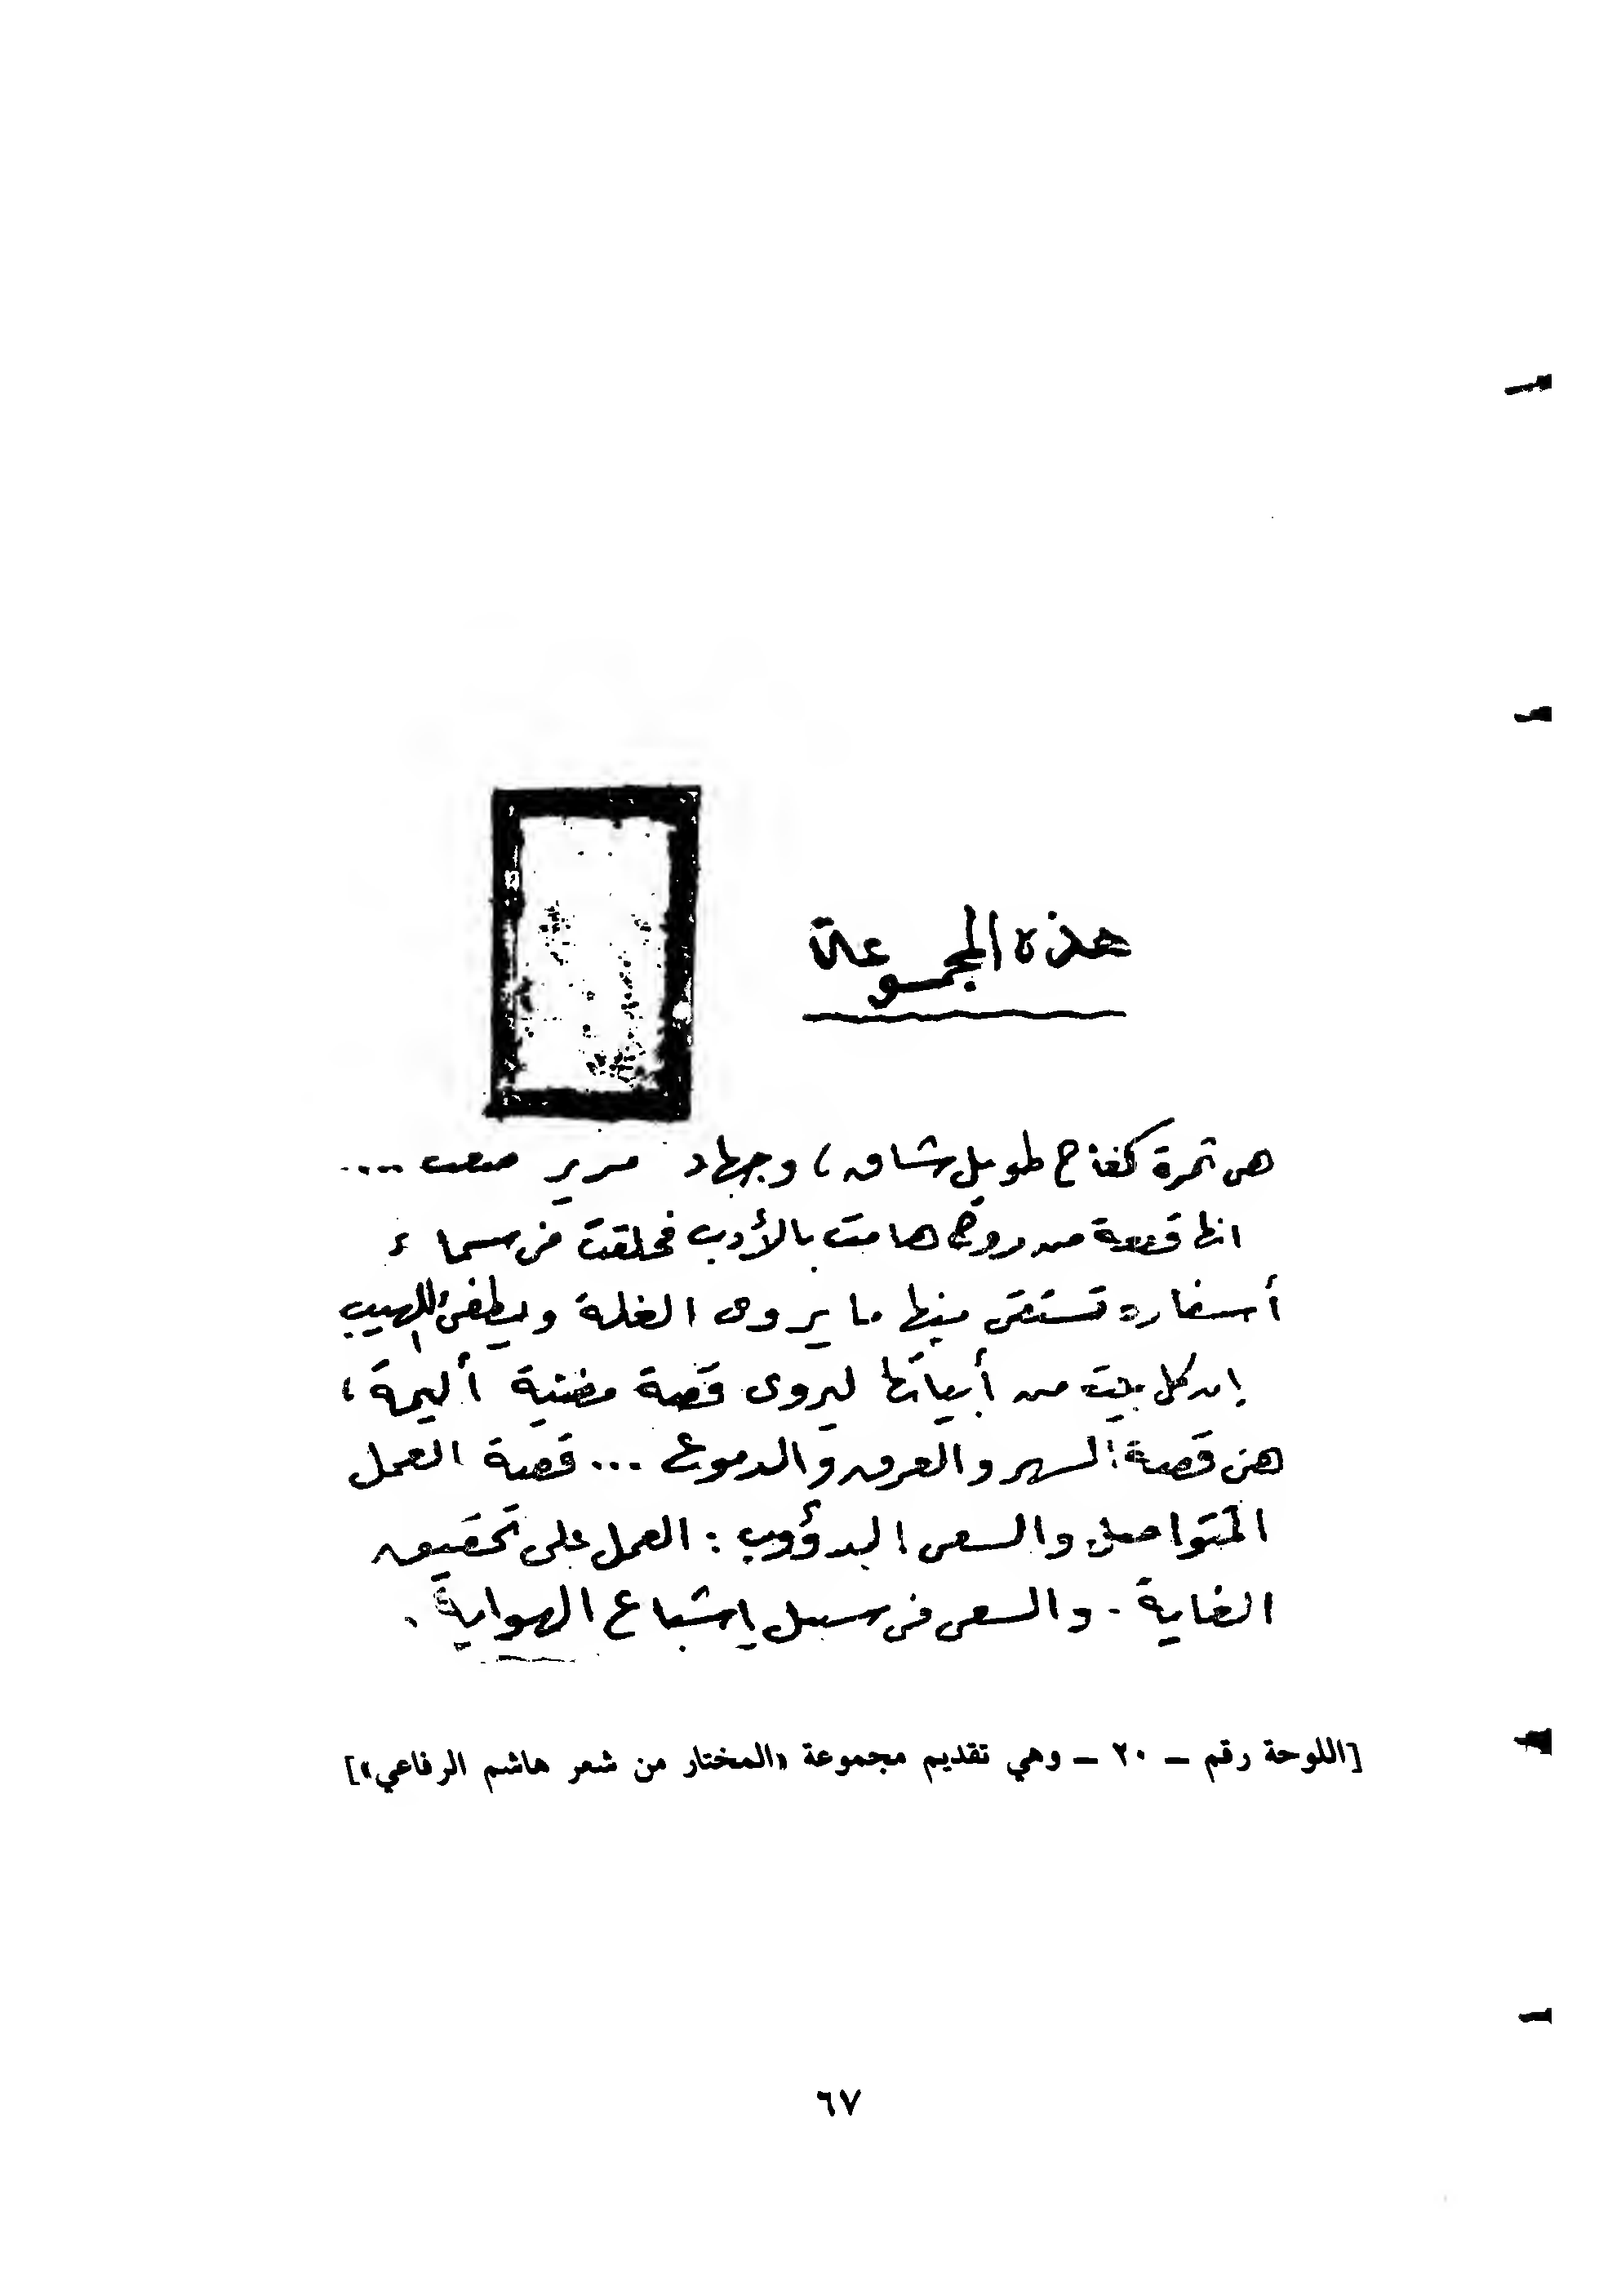 هذه المجموعة
هى ثمرة كفاح طويل شاق ، وجهاد مرير صعب ....
انها قطعة من روح هامت بالأدب فحلقت فى سماء
أسفاره تستقى منها ما يروى الغلة ويطفئ اللهيب
إن كل بيت من أبياتها ليروى قصة مضنية أليمة ،
هى قصة السهر والعرق والدموع ... قصة العمل
المتواصل والسعى الدؤوب : العمل على تحقيق
الغاية . والسعى فى سبيل إشباع الهواية .
[اللوحة رقم – ٢٠ – وهي تقديم مجموعة «المختار من شعر هاشم الرفاعي»]
٦٧